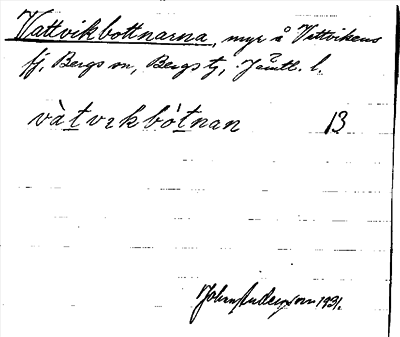 Vattvikbottnarna, myr å Vattvikens
fj, Bergs sn, Bergs tg, Jämtl. l.
vàtvɪkbòtnan 13
John Anderson 1931.